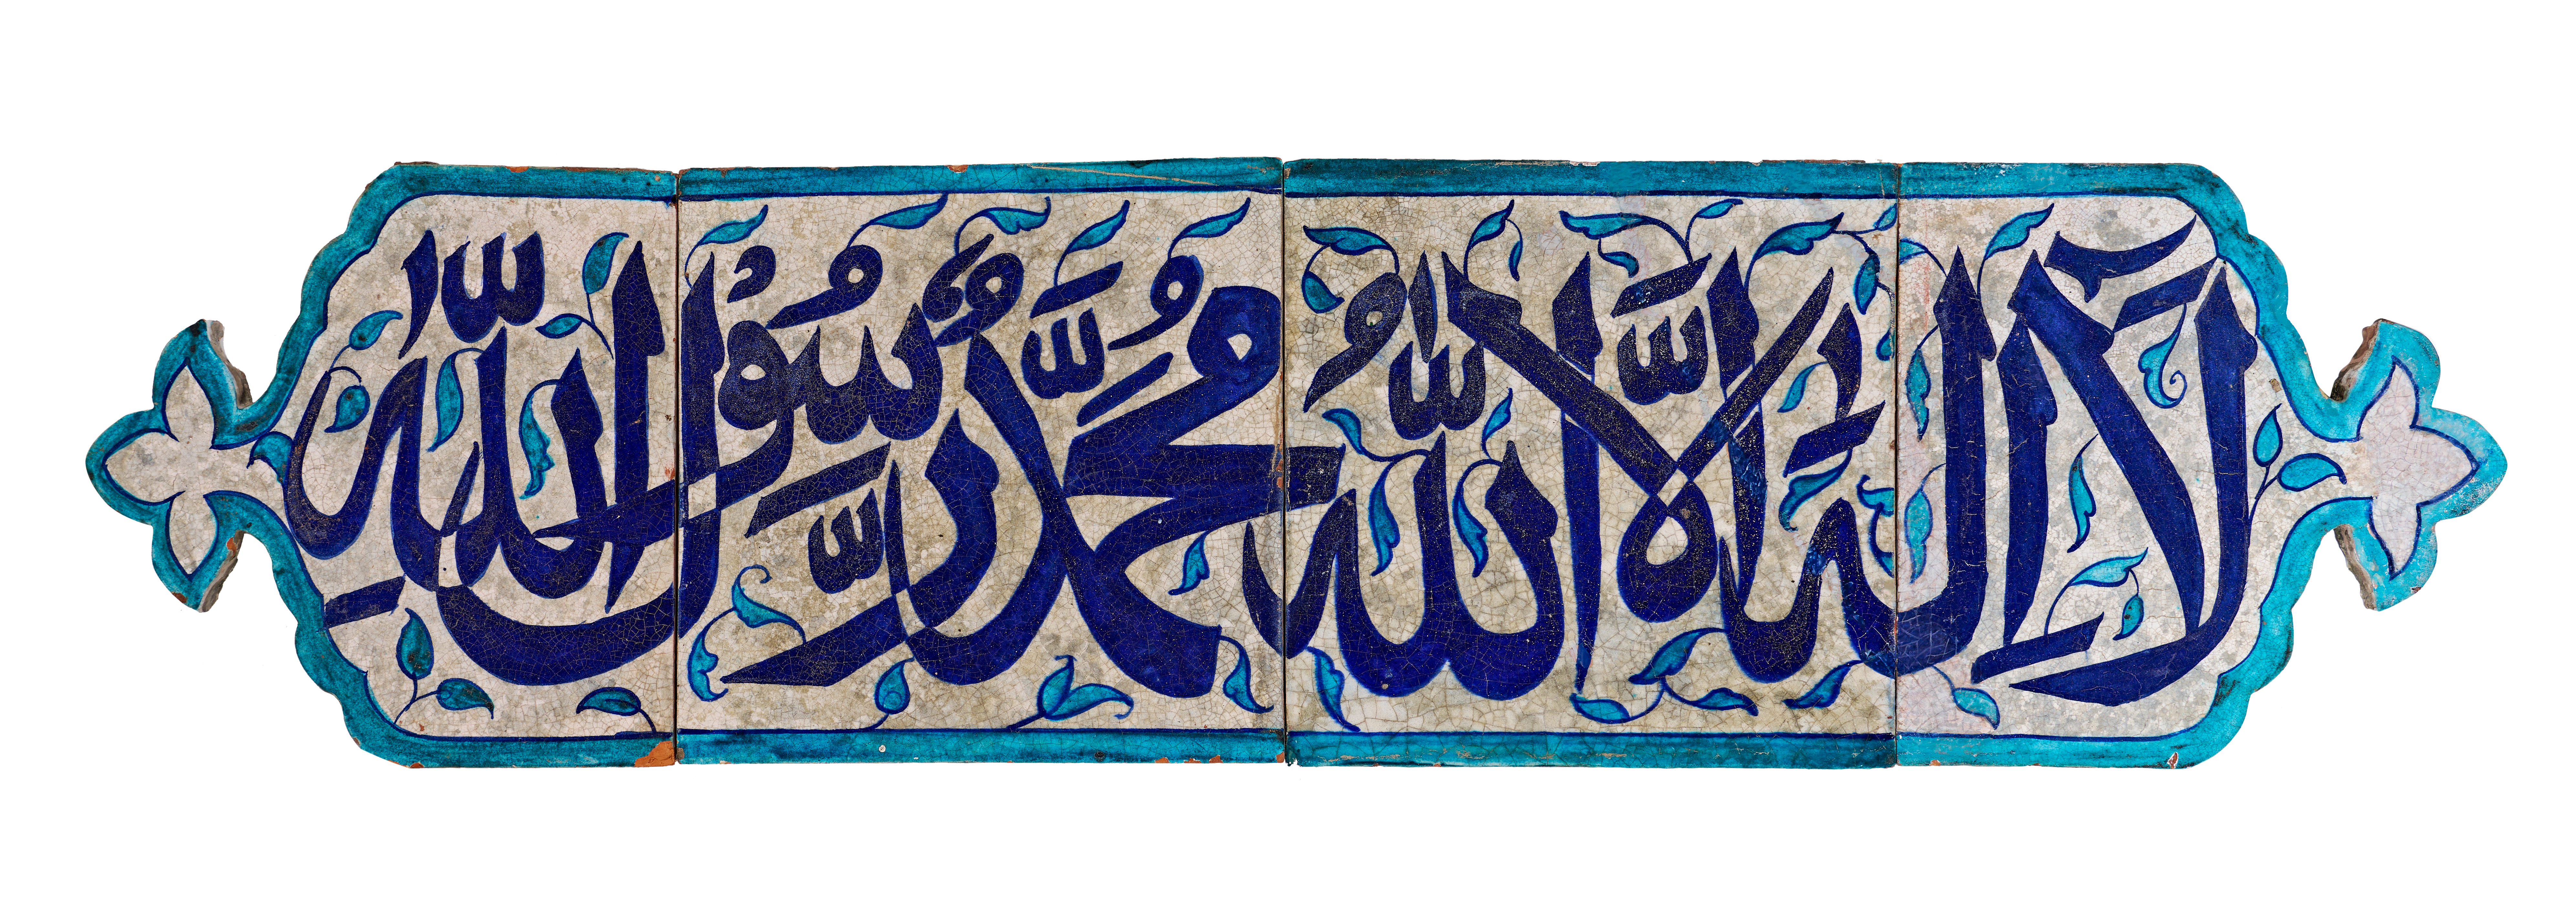 لَا إِلَٰهَ إِلَّا اللَّهُ مُحَمَّدٌ رَّسُولُ اللَّهِ